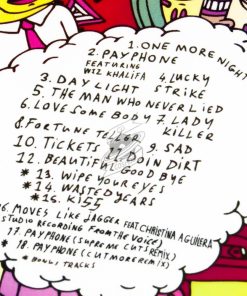 1. ONE MORE NIGHT
2. PAYPHONE
FEATURING
WIZ KHALIFA 4. LUCKY
3. DAYLIGHT STRIKE
5. THE MAN WHO NEVER LIED
6. LOVE SOMEBODY 7. LADY
KILLER
8. FORTUNE TELLER
10. TICKETS 9. SAD
11. DOIN DIRT
12. BEAUTIFUL GOODBYE
* 13. WIPE YOUR EYES
* 14. WASTED YEARS
* 15. KISS
16. MOVES LIKE JAGGER FEAT CHRISTINA AGUILERA
STUDIO RECORDING FROM THE VOICE)
17. PAYPHONE (SUPREME CUTS REMIX)
* 18. PAYPHONE (CUTMORE REMIX)
* BONUS TRACKS